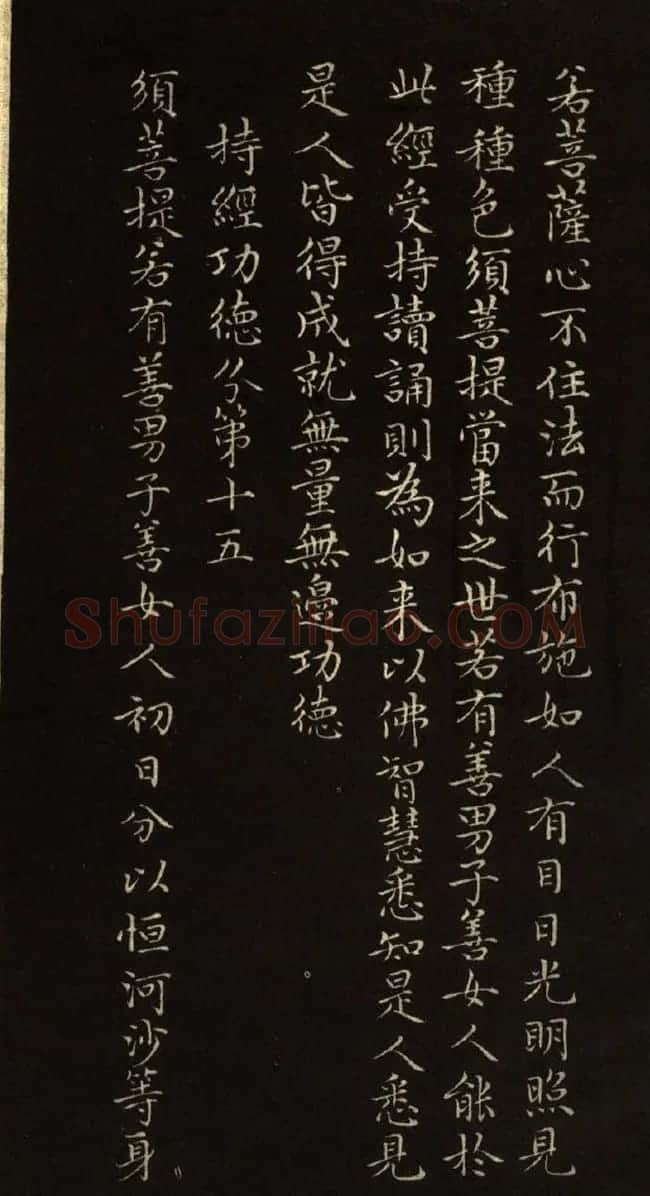 若菩薩心不住法而行布施如人有目日光明照見
種種色須菩提當来之世若有善男子善女人能於
此經受持讀誦則為如来以佛智慧悉知是人悉見
是人皆得成就無量無邊功德
持經功德分第十五
須菩提若有善男子善女人初日分以恒河沙等身
Shufaziliao.COM